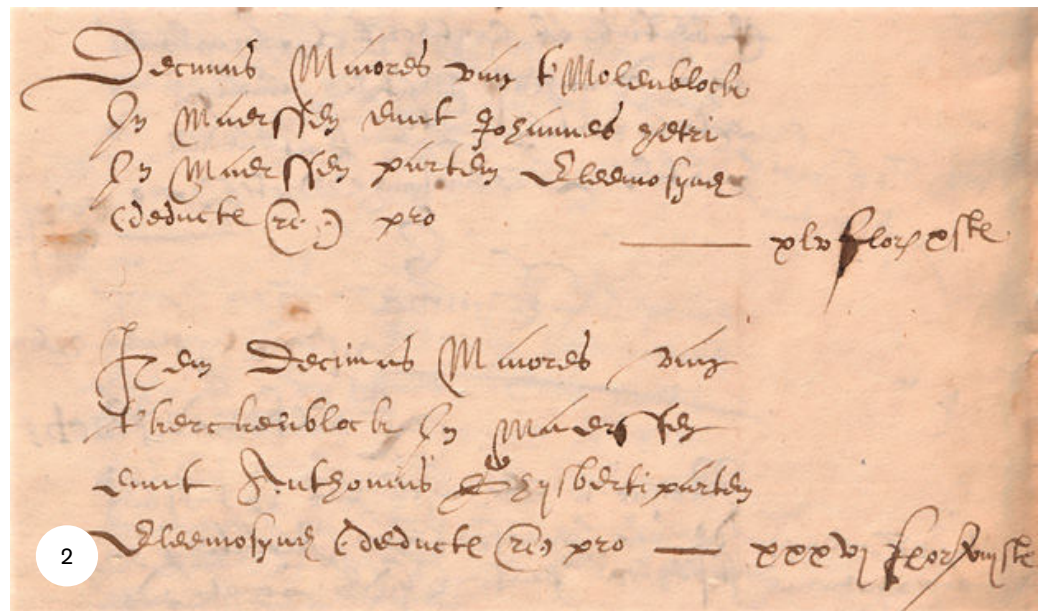 Decimas Maiores van t'Molenblock
In Maerssen emit Johannes petri
In Maerssen partem Eleemosyne
(deducte etc.) pro xlv flor x st
Item Decimas Maiores van
t'kerckenblock In Maerssen
emit Anthonius Ghijsberti partem
2 Eleemosyne (deducte etc) pro xxxvj flor st